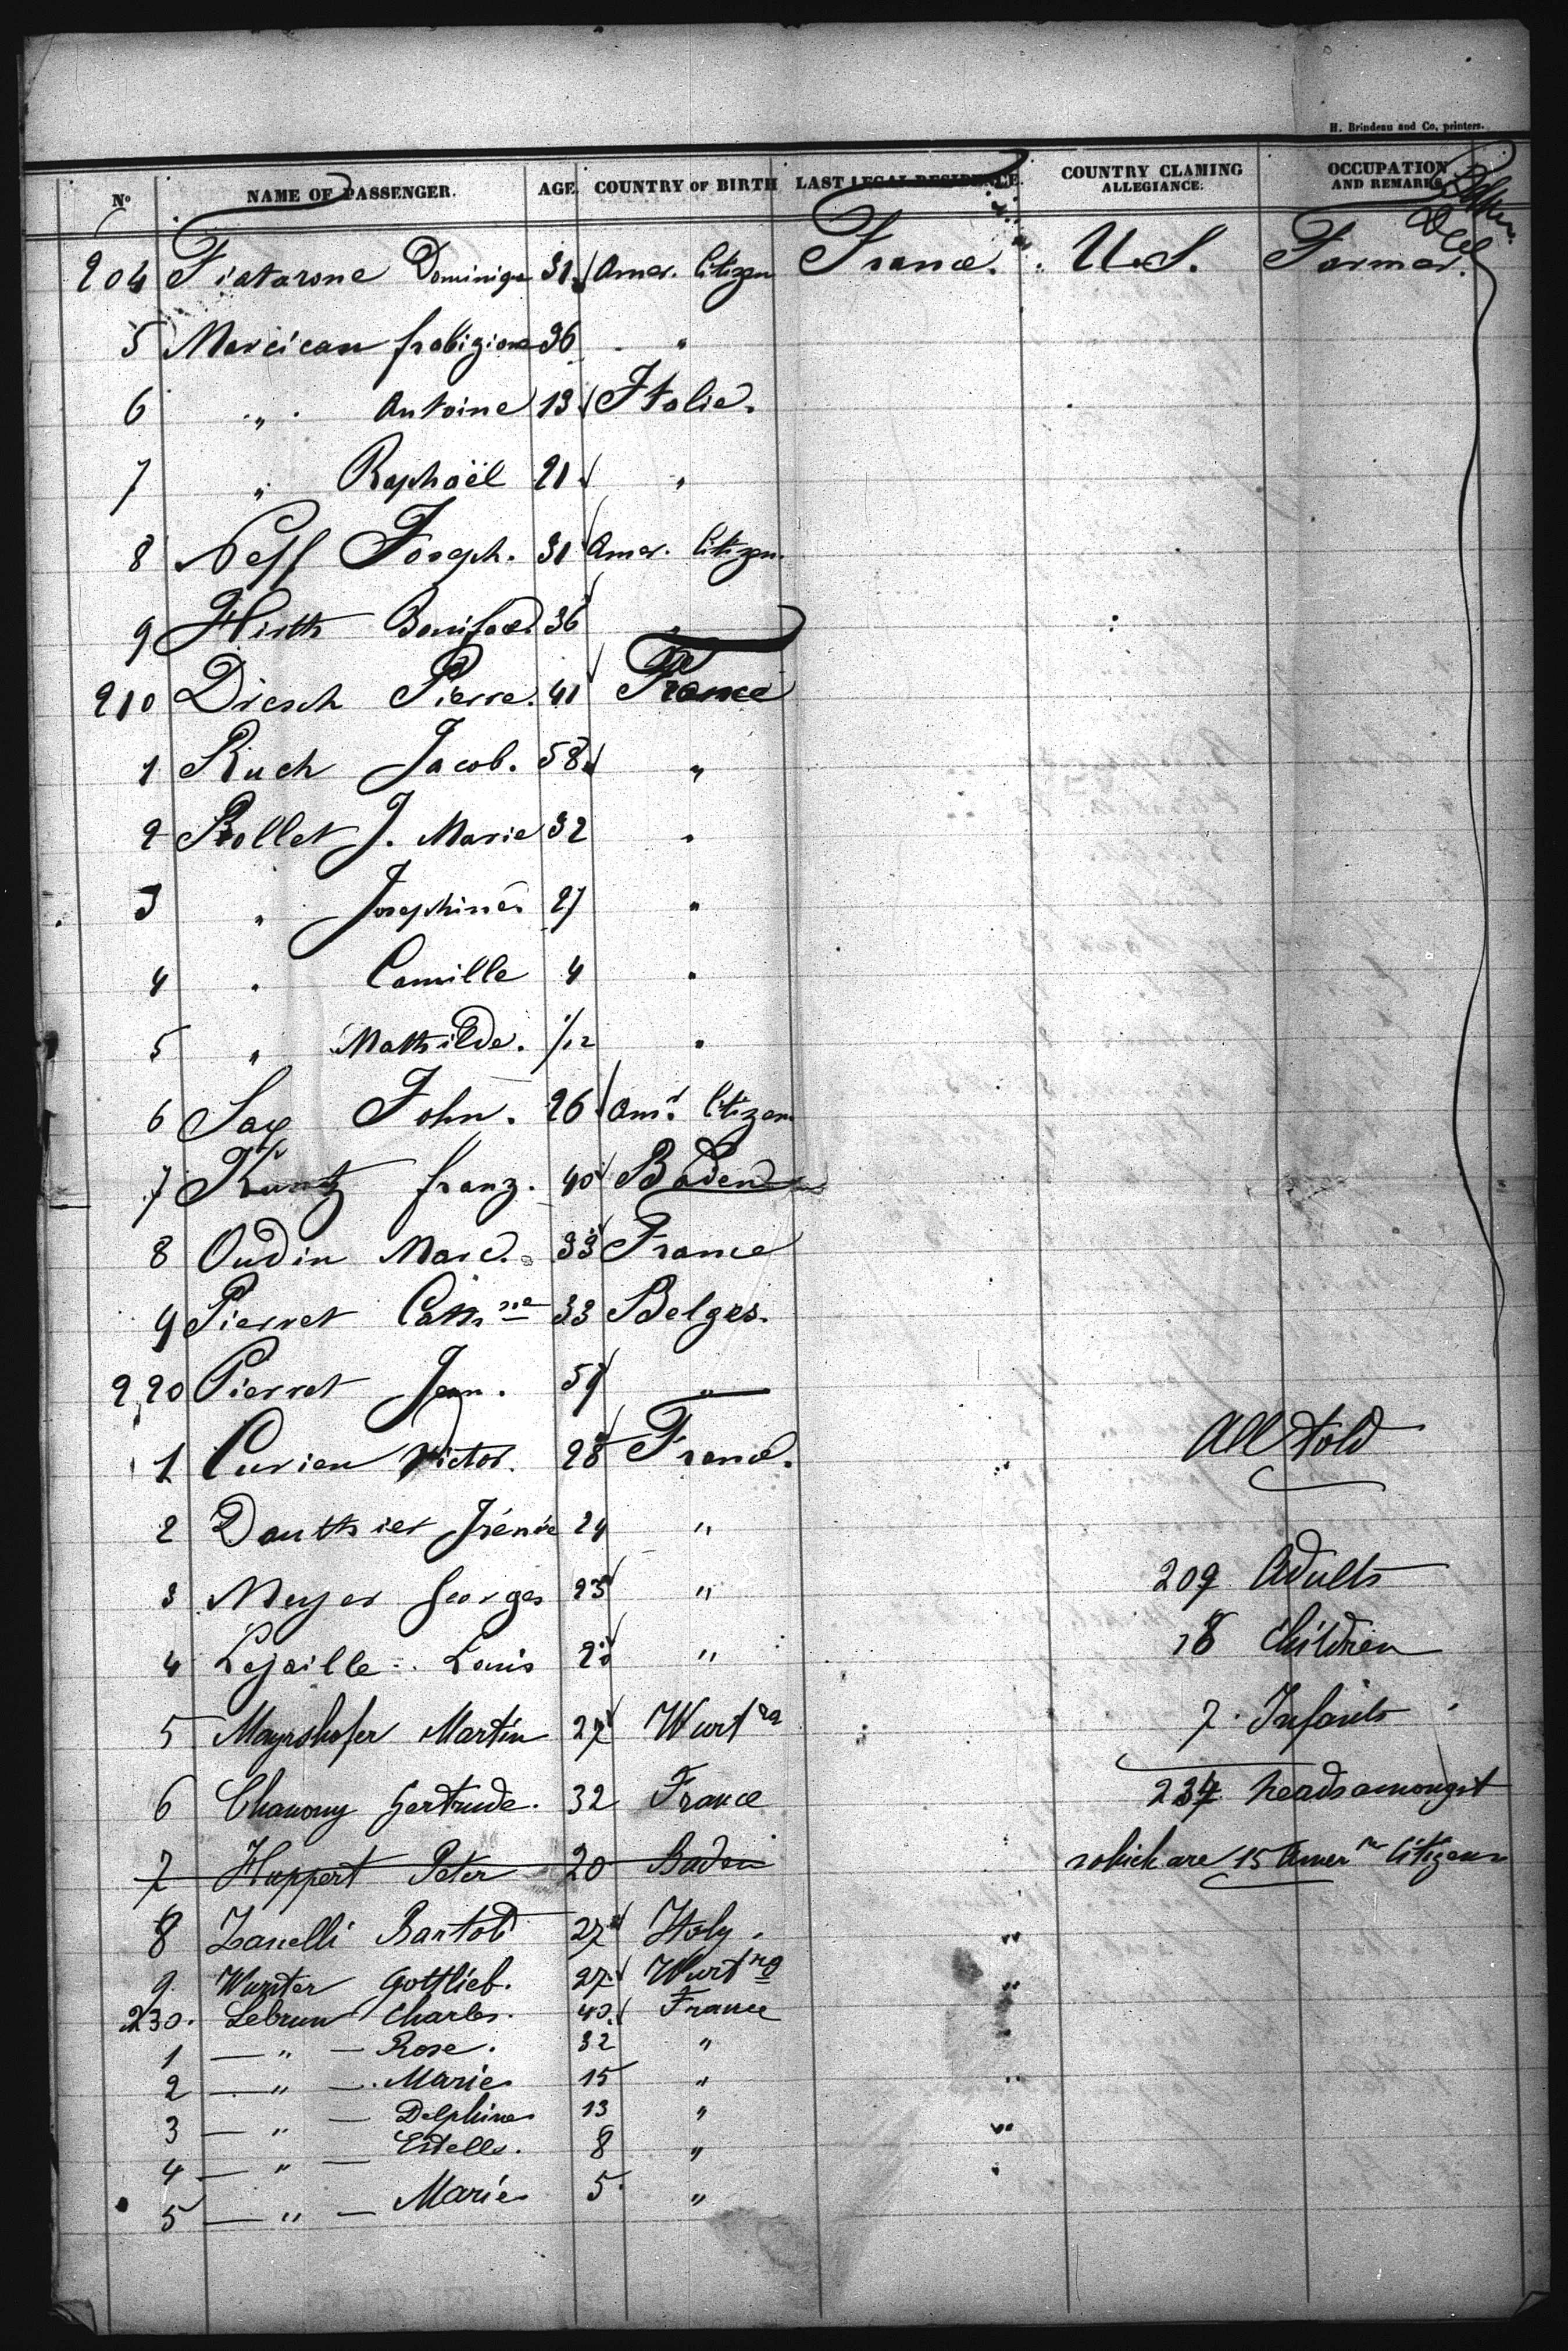 H. Brindeau and Co, printers.
No NAME OF PASSENGER. AGE COUNTRY OF BIRTH LAST LEGAL RESIDENCE. COUNTRY CLAMING ALLEGIANCE. OCCUPATION AND REMARKS
204 Fiatarone Dominique 31 Amer. Citizen France. U.S. Farmer.
5 Marcican 36 "
6 " Antoine 13 Italie.
7 " Raphaël 21 "
8 Neff Joseph. 31 Amer. Citizen.
9 Hirth Boniface. 36 "
210 Driesch Pierre. 41 France
1 Ruch Jacob. 58 "
2 Rollet J. Marie 32 "
3 " Josephine 27 "
4 " Camille 4 "
5 " Mathilde. 1/12 "
6 Sax John. 26 Amn. Citizen
7 Kuntz franz. 40 Baden
8 Oudin Marc. 33 France
9 Pierret Cathne 33 Belges.
220 Pierret Jean. 59 "
1 Curien Victor. 28 France.
All told
2 Dauthier Irénée 24 "
3 Meyer Georges 25 "
209 Adults
4 Lejaille Louis "
18 Children
5 Mayrshofer Martin 27 Wurtrg
7 Infants
6 Chanony Gertrude. 32 France
234 heads amongst
7 Huppert Peter 20 Baden
which are 15 Amern Citizens
8 Zanelli Bartol 27 Italy. "
9 Wurster Gottlieb. 27 Wurtrg "
230. Lebrun Charles. 40. France
1 — " — Rose. 32 "
2 — " — Marie 15 " "
3 — " — Delphine 13 "
4 — " — Estelle. 8 " "
5 — " — Marie 5 "